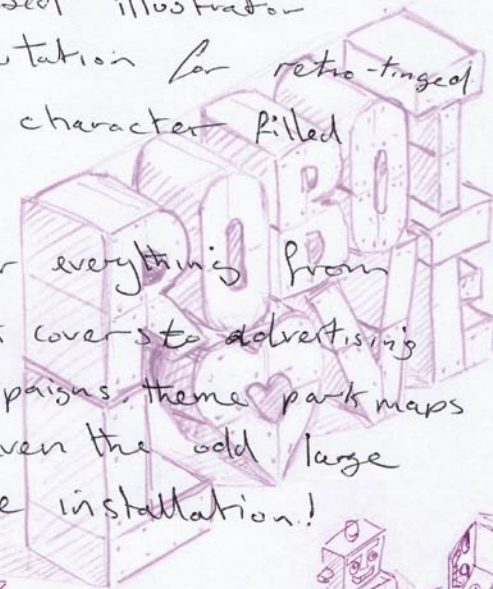 illustrator
utation for retro-tinged
character filled
r everything from
covers to advertising
paigns, theme park maps
ven the odd large
e installation!
ROBOT
L♥VE